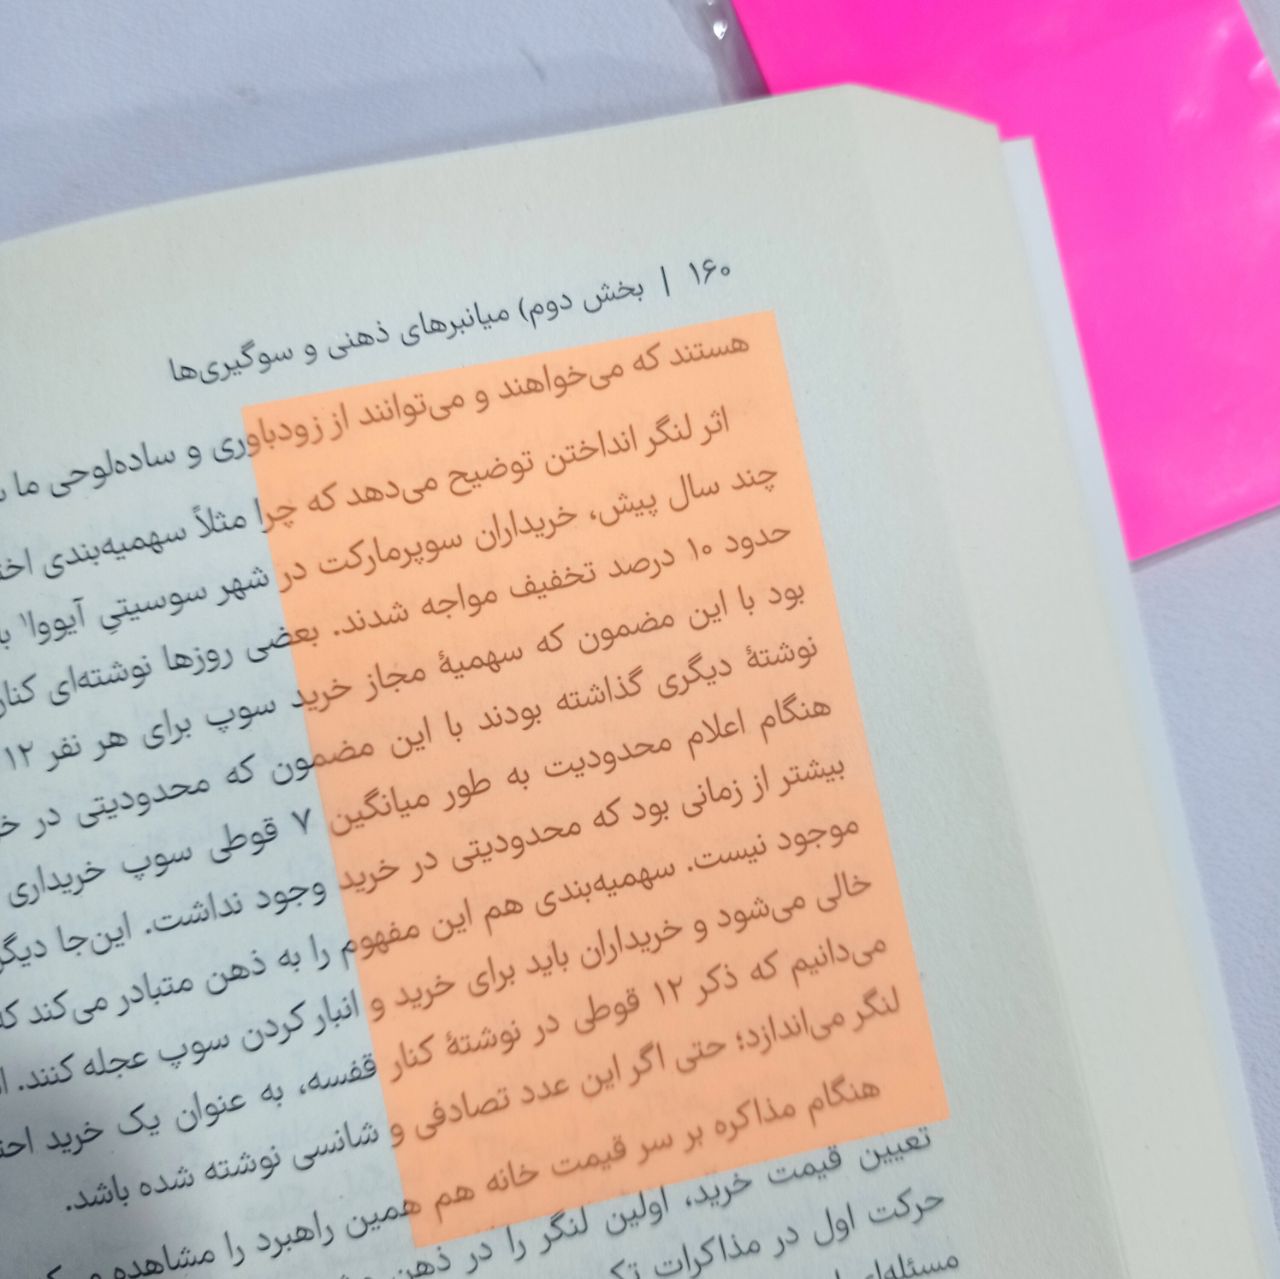 ۱۶۰ | بخش دوم) میانبرهای ذهنی و سوگیری‌ها
هستند که می‌خواهند و می‌توانند از زودباوری و ساده‌لوحی ما
اثر لنگر انداختن توضیح می‌دهد که چرا مثلاً سهمیه‌بندی
چند سال پیش، خریداران سوپرمارکت در شهر سوسیتیِ آیووا۱
حدود ۱۰ درصد تخفیف مواجه شدند. بعضی روزها نوشته‌ای کنار
بود با این مضمون که سهمیهٔ مجاز خرید سوپ برای هر نفر ۱۲
نوشتهٔ دیگری گذاشته بودند با این مضمون که محدودیتی در
هنگام اعلام محدودیت به طور میانگین ۷ قوطی سوپ خریداری
بیشتر از زمانی بود که محدودیتی در خرید وجود نداشت. این‌جا دیگر
موجود نیست. سهمیه‌بندی هم این مفهوم را به ذهن متبادر می‌کند که
خالی می‌شود و خریداران باید برای خرید و انبار کردن سوپ عجله کنند.
می‌دانیم که ذکر ۱۲ قوطی در نوشتهٔ کنار قفسه، به عنوان یک خرید
لنگر می‌اندازد؛ حتی اگر این عدد تصادفی و شانسی نوشته شده باشد.
هنگام مذاکره بر سر قیمت خانه هم همین راهبرد را مشاهده
تعیین قیمت خرید، اولین لنگر را در ذهن
حرکت اول در مذاکرات